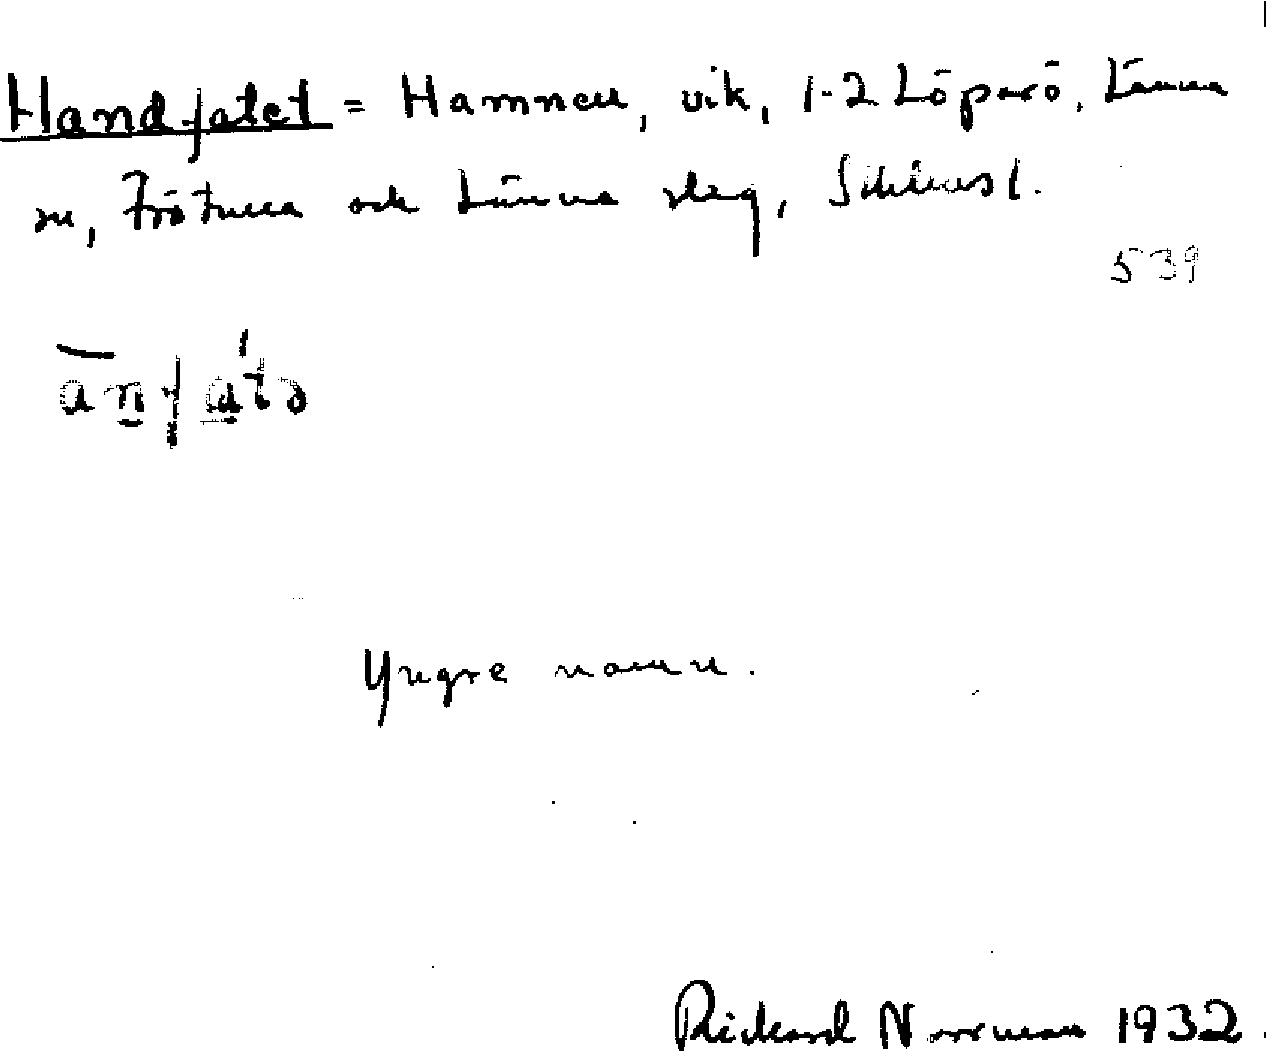 Handfatet = Hamnen, vik, 1-2 Löparö, Länna
sn, Frötuna och Länna slg, Sthlmsl.
539
anfatə
Yngre namn.
Rickard Norrman 1932.